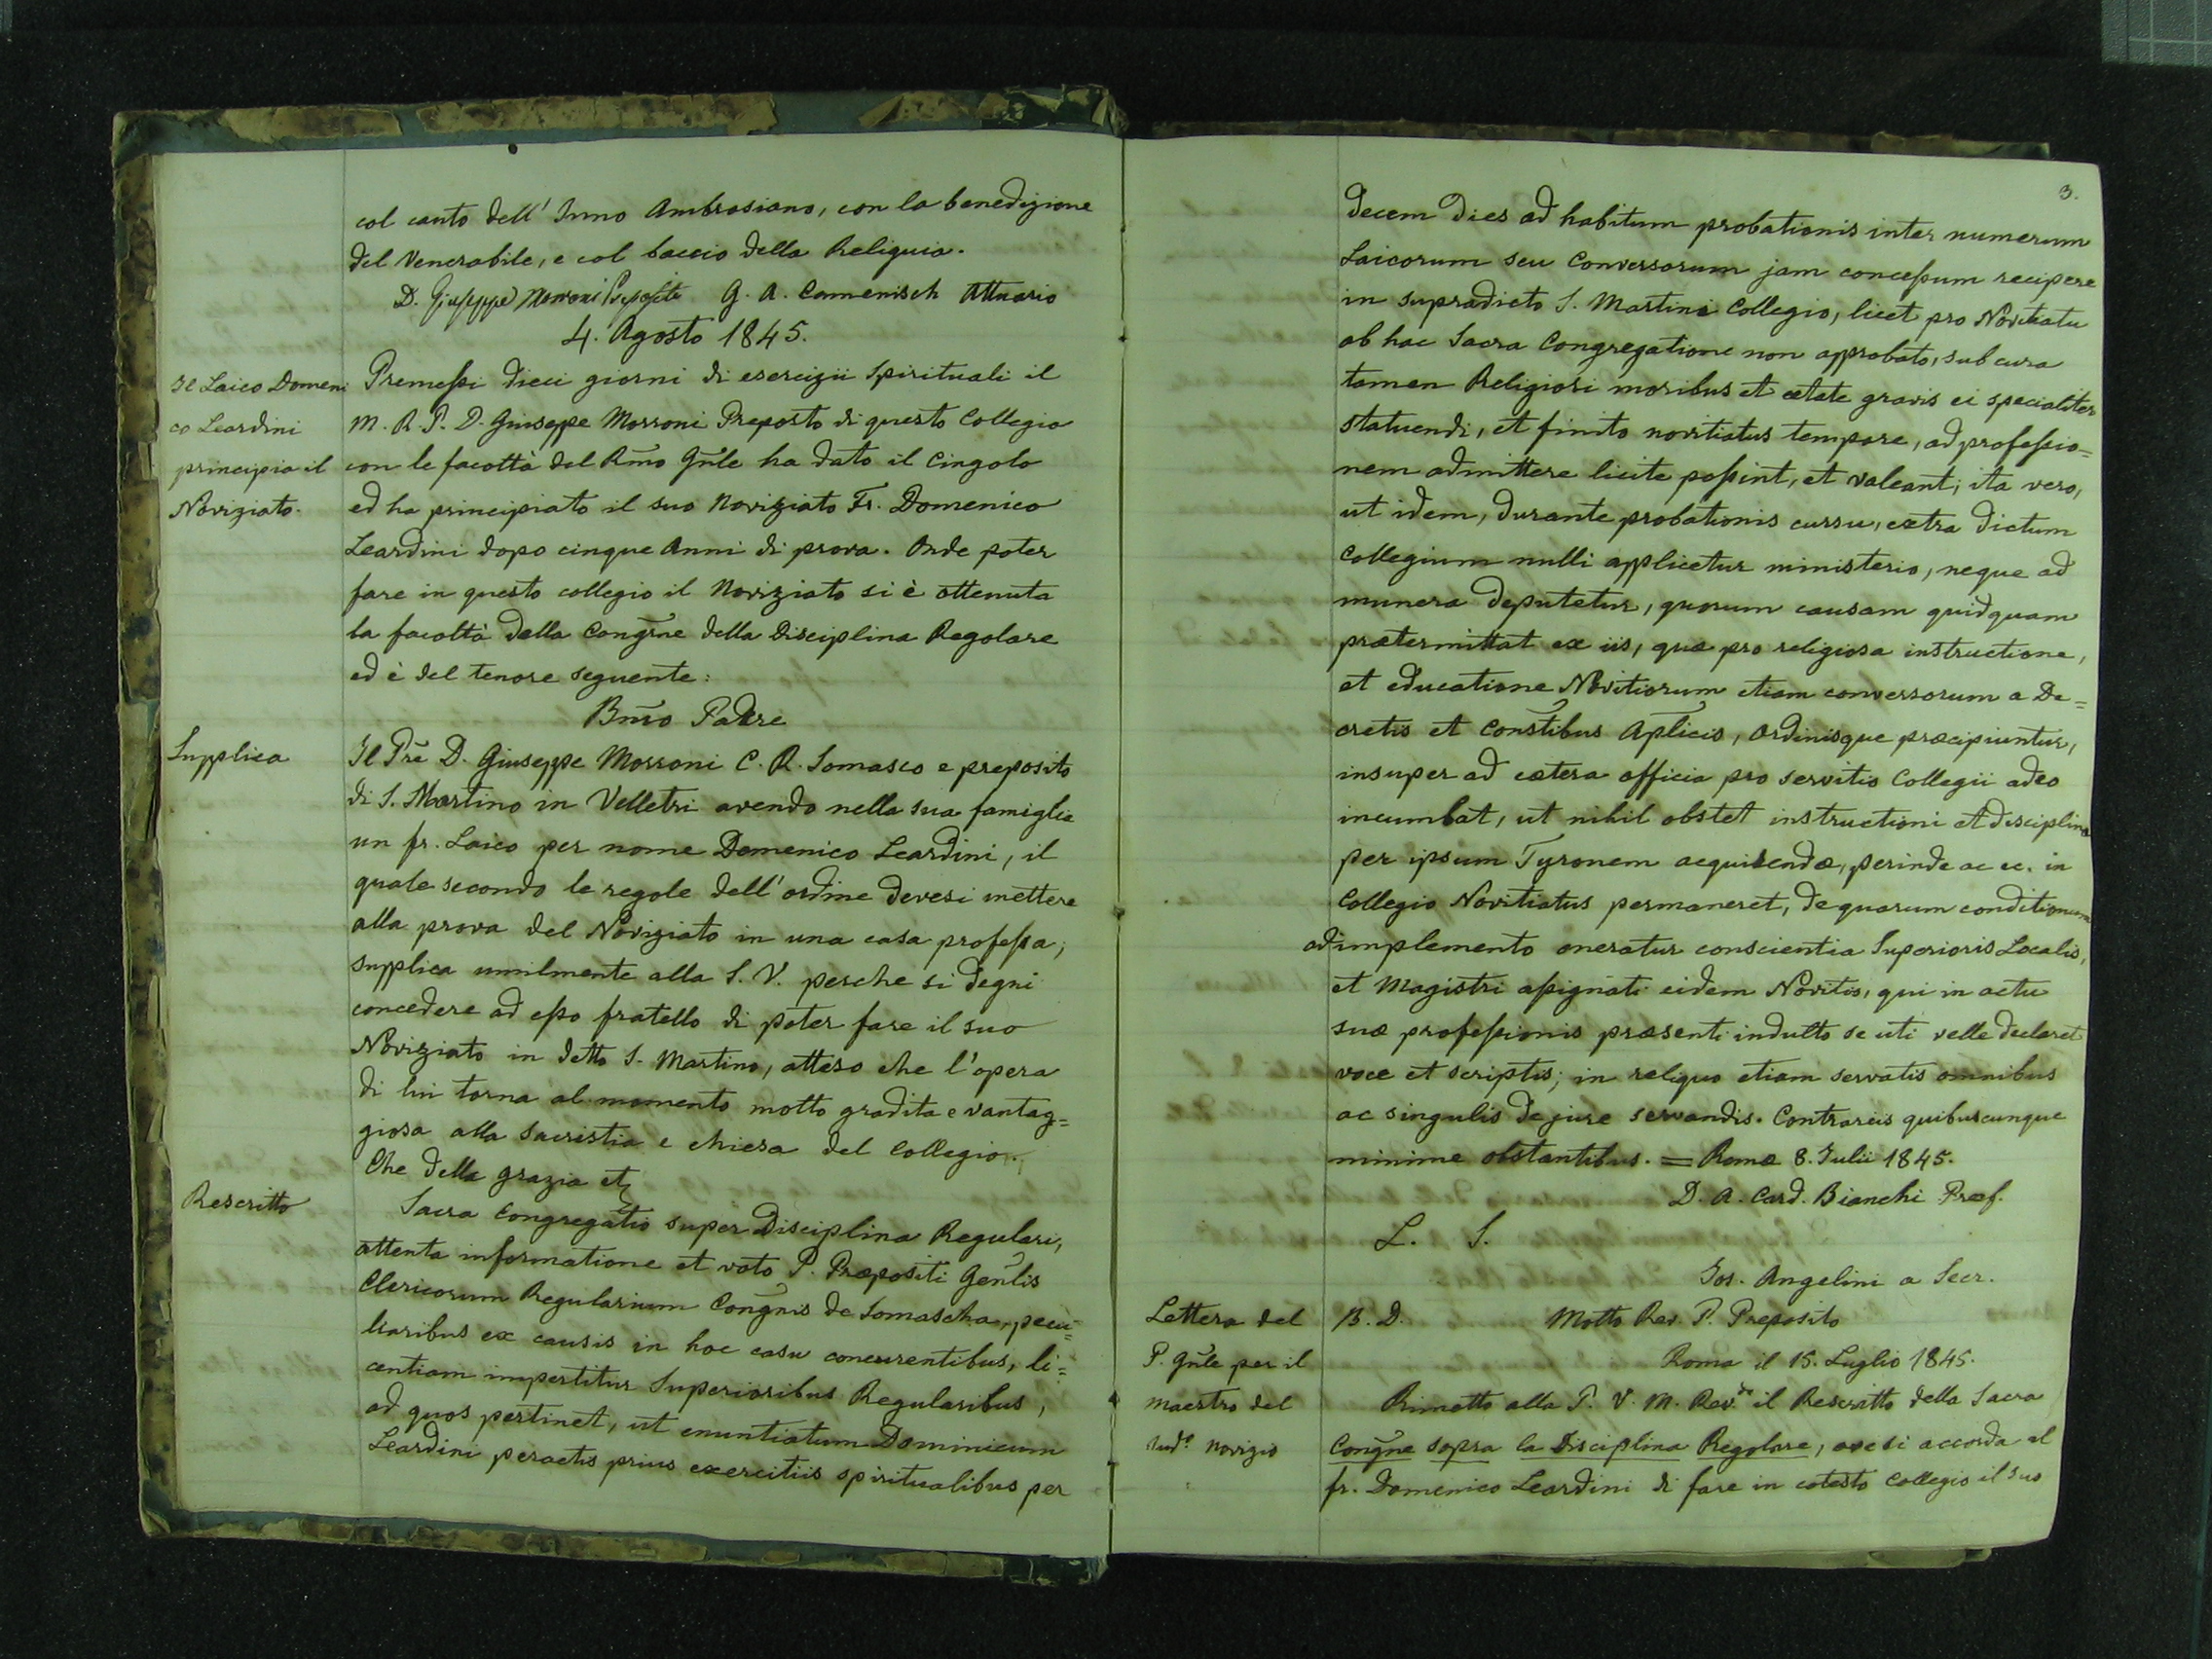 col canto dell' Inno Ambrosiano, con la benedizione
del Venerabile, e col baccio della Reliquia.
D. Giuseppe Morroni Preposito G. A. Camenisch Attuario
4. Agosto 1845.
Il Laico Domeni
co Leardini
principia il
Noviziato.
Premessi dieci giorni di esercizii Spirituali il
M. R. P. D. Giuseppe Morroni Preposto di questo Collegio
con le facoltà del Rm̃o Gñle ha dato il Cingolo
ed ha principiato il suo Noviziato Fr. Domenico
Leardini dopo cinque Anni di prova. Onde poter
fare in questo collegio il Noviziato si è ottenuta
la facoltà della Congr̃ne della Disciplina Regolare
ed è del tenore seguente:
Bm̃o Padre
Supplica
Il Pr̃e D. Giuseppe Morroni C. R. Somasco e preposito
di S. Martino in Velletri avendo nella sua famiglia
un fr. Laico per nome Domenico Leardini, il
quale secondo le regole dell' ordine devesi mettere
alla prova del Noviziato in una casa professa;
supplica umilmente alla S. V. perche si degni
concedere ad esso fratello di poter fare il suo
Noviziato in detto S. Martino, atteso che l'opera
di lui torna al momento molto gradita e vantag=
giosa alla sacristia e chiesa del Collegio.
Che della grazia et
Rescritto
Sacra Congregatio super Disciplina Regulari,
attenta informatione et voto P. Præpositi Geñlis
Clericorum Regularium Congñis de Somascha, pecu=
liaribus ex causis in hoc casu concurrentibus, li=
centiam impertitur Superioribus Regularibus,
ad quos pertinet, ut enuntiatum Dominicum
Leardini peractis prius exercitiis spiritualibus per
3.
decem dies ad habitum probationis inter numerum
Laicorum seu Conversorum jam concessum recipere
in supradicto S. Martini Collegio, licet pro Novitiatu
ab hac Sacra Congregatione non approbato, sub cura
tamen Religiosi moribus et ætate gravis ei specialiter
statuendi, et finito novitiatus tempore, ad professio=
nem admittere licite possint, et valeant; ita vero,
ut idem, durante probationis cursu, extra dictum
Collegium nulli applicetur ministerio, neque ad
munera deputetur, quorum causam quidquam
prætermittat ex iis, quæ pro religiosa instructione,
et educatione Novitiorum etiam conversorum a De=
cretis et Constibus Aplicis, Ordinisque præcipiuntur,
insuper ad cætera officia pro servitio Collegii adeo
incumbat, ut nihil obstet instructioni et disciplinæ
per ipsum Tyronem acquirendæ, perinde ac ec. in
Collegio Novitiatus permaneret, de quarum conditionum
adimplemento oneratur conscientia Superioris Localis,
et Magistri assignati eidem Novitio, qui in actu
suæ professionis præsenti indulto se uti velle declaret
voce et scriptis; in reliquo etiam servatis omnibus
ac singulis de jure servandis. Contrariis quibuscunque
minime obstantibus. = Romæ 8. Julii 1845.
D. A. Card. Bianchi Præf.
L. S.
Jos. Angelini a Secr.
Lettera del
P. Gñle per il
maestro del
sudº novizio
B. D. Molto Rev. P. Preposito
Roma il 15. Luglio 1845.
Rimetto alla P. V. M. Rev.da il Rescritto della Sacra
Congñe sopra la Disciplina Regolare, ove si accorda al
fr. Domenico Leardini di fare in cotesto Collegio il suo